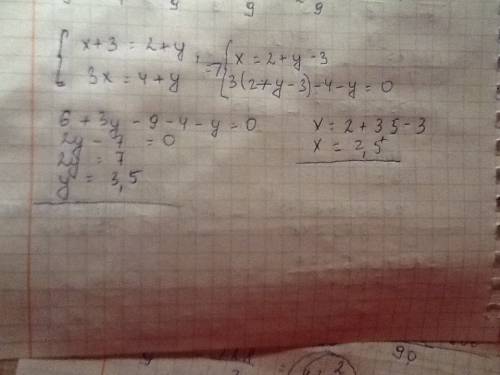 x+3 = 2+y
3x = 4+y
=> x = 2+y-3
3(2+y-3)-4-y=0
6+3y-9-4-y=0
2y-7=0
2y=7
y=3,5
x=2+3,5-3
x=2,5